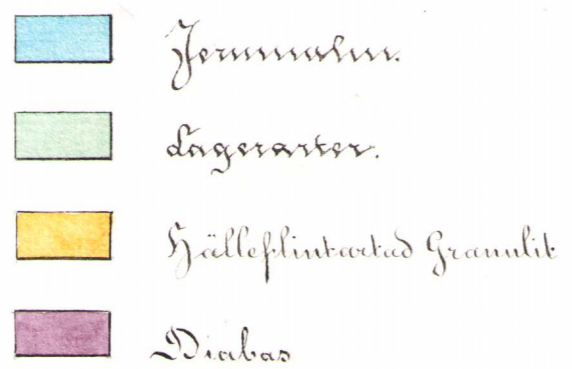 Jernmalm.
Lagerarter.
Hälleflintartad Granulit
Diabas